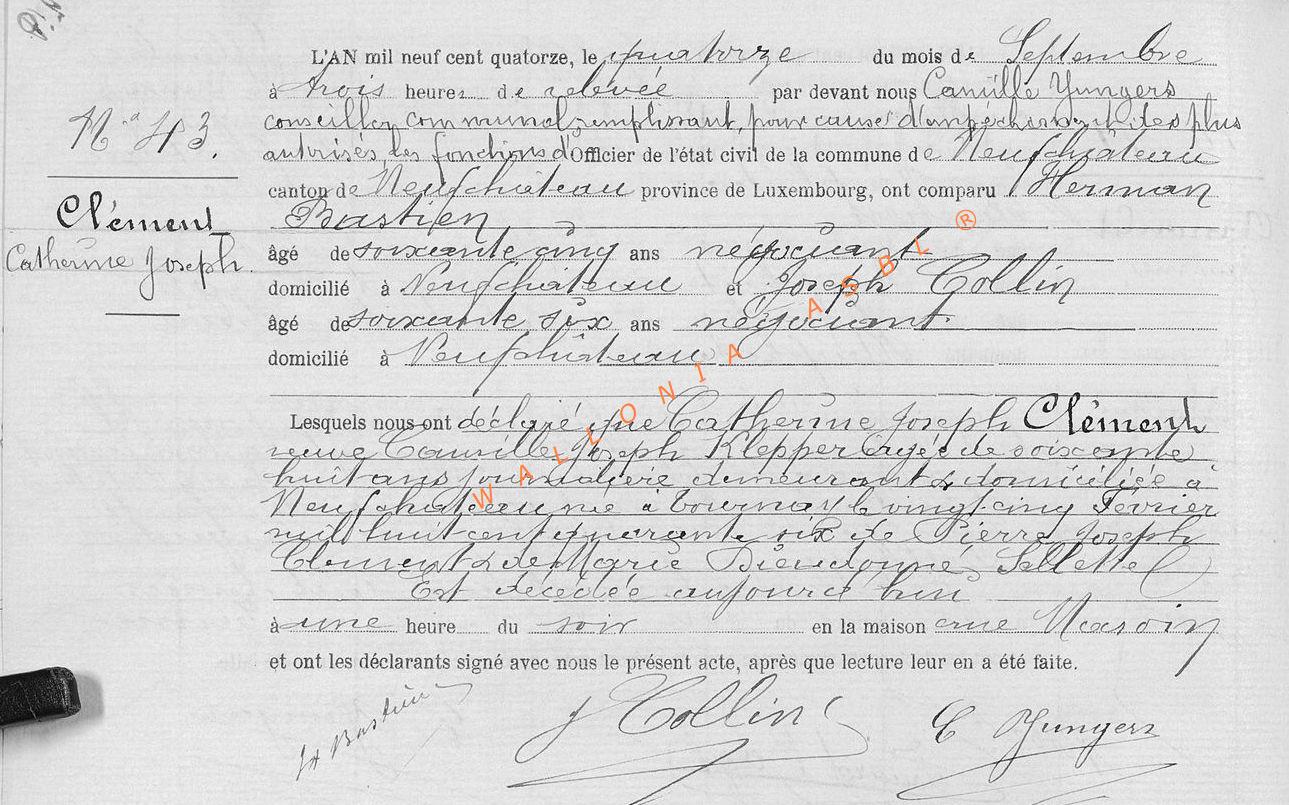 L'AN mil neuf cent quatorze, le quatorze du mois de Septembre
à trois heures de relevée par devant nous Camille Yungers
conseiller communal remplissant, pour cause d'empêchement des plus
autorisés, les fonctions d'Officier de l'état civil de la commune de Neufchâteau
canton de Neufchâteau province de Luxembourg, ont comparu Herman
Bastien
âgé de soixante cinq ans négociant
domicilié à Neufchâteau et Joseph Collin
âgé de soixante six ans négociant
domicilié à Neufchâteau
N° 43.
Clément
Catherine Joseph.
Lesquels nous ont déclaré que Catherine Joseph Clément
veuve Camille Joseph Klepper âgée de soixante
huit ans journalière demeurant & domiciliée à
Neufchateau née à Tournay le vingt cinq Février
mil huit cent quarante six de Pierre Joseph
Clement & de Marie Dieudonné
Est décédée aujourd'hui
à une heure du soir en la maison rue
et ont les déclarants signé avec nous le présent acte, après que lecture leur en a été faite.
Bastien J Collin C Yungers
WALLONIA ASBL ®